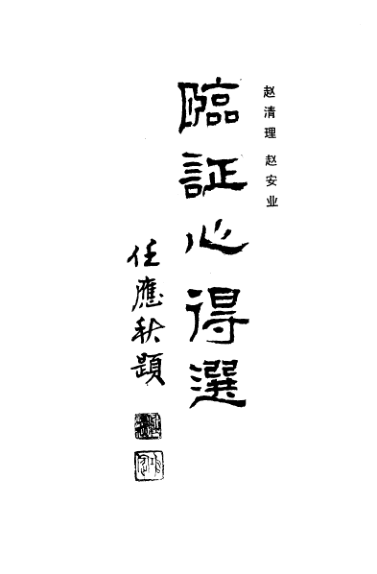 赵清理 赵安业
臨証心得選
任應秋題